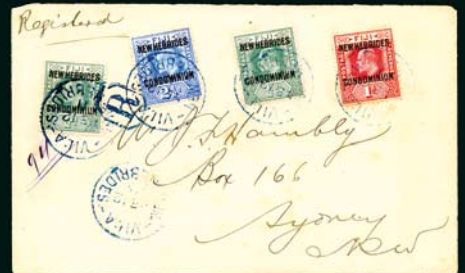 Registered
FIJI
NEW HEBRIDES
CONDOMINIUM
FIJI
NEW HEBRIDES
CONDOMINIUM
FIJI
NEW HEBRIDES
CONDOMINIUM
FIJI
NEW HEBRIDES
CONDOMINIUM
R
VILA
94
W J Hambly
Box 166
Sydney
NSW